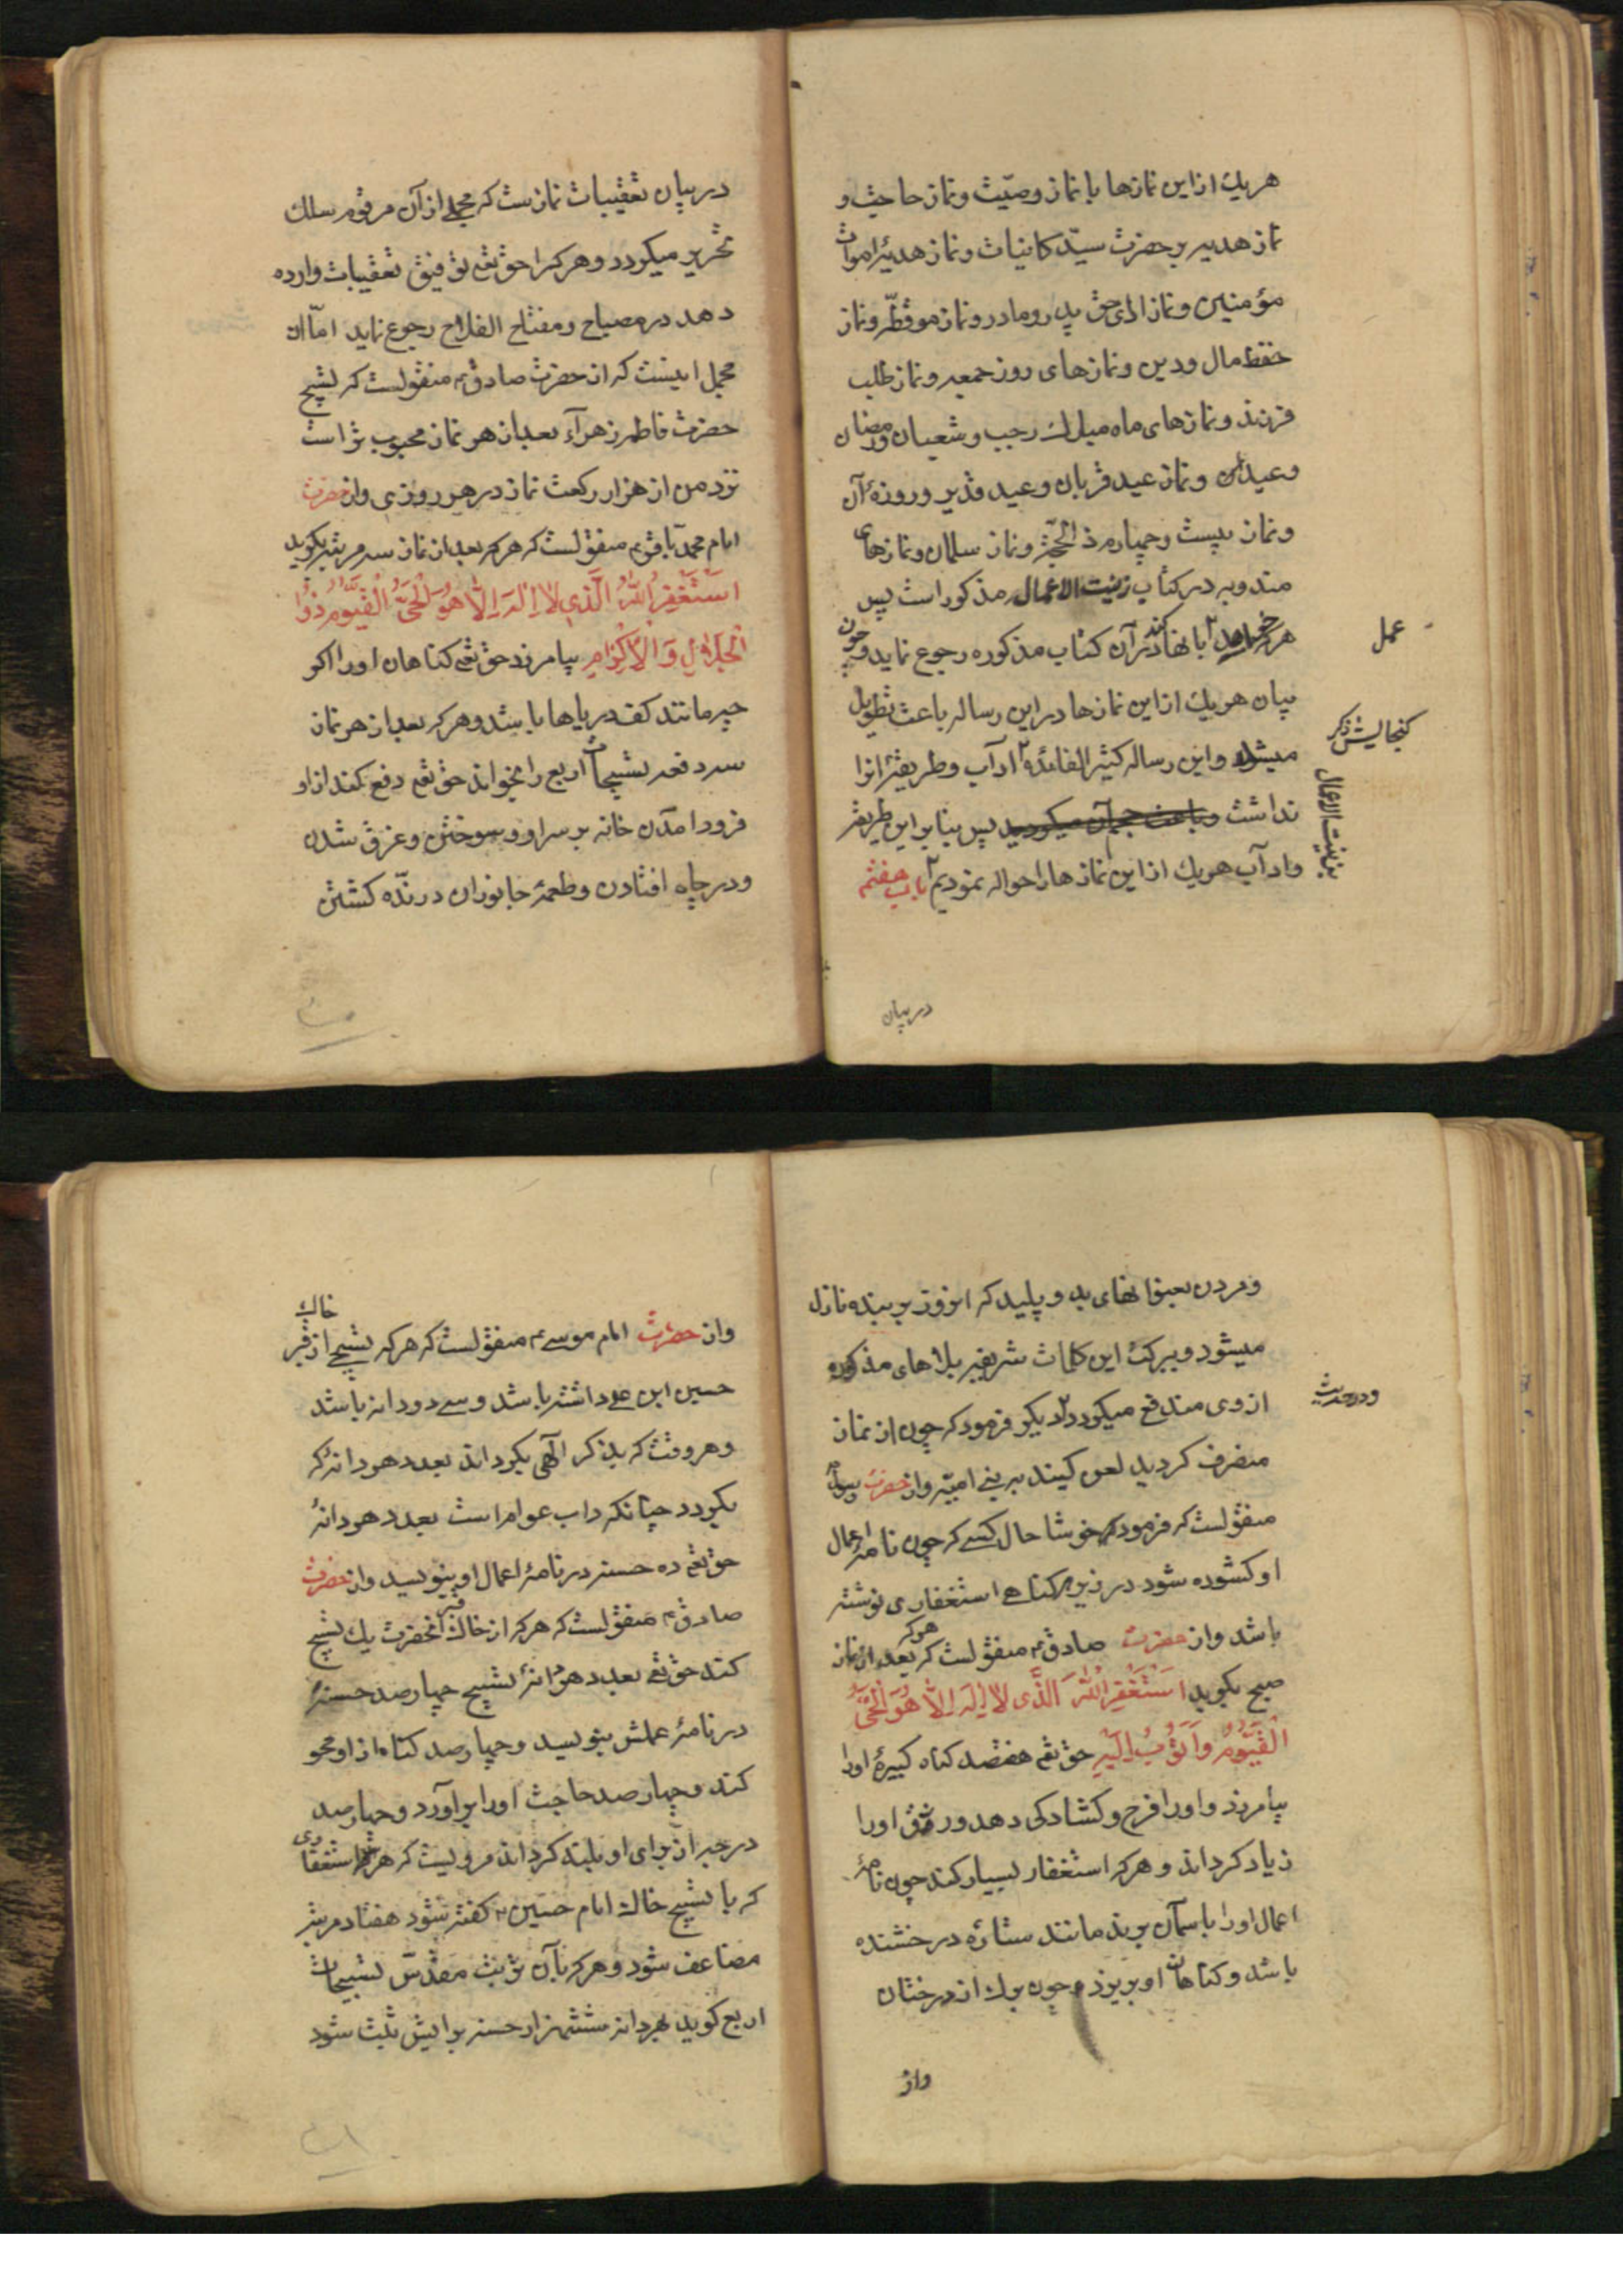 هریك از این نمازها با نماز وصیّت و نماز حاجت و
نماز هدیه بر حضرت سیّد کاینات و نماز هدیۀ اموات
مؤمنین و نماز ادای حق پدر و مادر و نماز موقطّر و نماز
حفظ مال و دین و نمازهای روز جمعه و نماز طلب
فرزند و نمازهای ماه مبارك رجب و شعبان و رمضان
و عیدان و نماز عید قربان و عید غدیر و روزۀ آن
و نماز بیست و چهارم ذ الحجّه و نماز سلمان و نمازهای
مندوبه در کتاب زینت الاعمال مذکور است پس
هرکه خواهد بانها کند در آن کتاب مذکوره رجوع نماید و چون
عمل
بیان هریك از این نمازها در این رساله باعث تطویل
میشد و این رساله کثیر الفائده آداب و طریقۀ آنرا
کنجایش ذکر
نداشت و باعث حجم آن میکردید پس بنابر این طریقه
و آداب هریك از این نمازها را حواله نمودیم باب هفتم
بزینت الاعمال
در بیان
در بیان تعقیبات نماز ست که مجملی از آن مرقوم سلك
تحریر میکردد و هرکرا حق تع توفیق تعقیبات وارده
دهد در مصباح و مفتاح الفلاح رجوع نماید امّا آن
مجمل اینست که از حضرت صادق ع منقولست که تسبیح
حضرت فاطمه زهرآء بعد از هر نماز محبوب تر است
نزد من از هزار رکعت نماز در هر روزی و از حضرت
امام محمّد باقر ع منقولست که هرکه بعد از نماز سه مرتبه بکوید
اَسْتَغْفِرُ اللهَ الَّذی لا اِلٰهَ اِلاّٰ هُوَ الْحَیُّ الْقَیُّومُ ذُو
الْجَلاٰلِ وَ الْاِکْرٰامِ بیامرزد حق تع کناهان او را اکر
چه مانند کف دریاها باشد و هرکه بعد از هر نماز
سه دفعه تسبیحات اربع را بخواند حق تع دفع کند از او
فرود امدن خانه بر سر او و سوختن و غرق شدن
و در چاه افتادن و طعمۀ جانوران درنده کشتن
و مردن بعنوانهای بد و پلید که انروز بر بنده نازل
میشود و ببرکت این کلمات شریفه بلاهای مذکوره
از وی مندفع میکردد دیکر فرمود که چون از نماز
و در حدیث
منصرف کردید لعن کنید بر بنی امیّه و از حضرت رسول
منقولست که فرمود که خوشا حال کسی که چون نامۀ اعمال
او کشوده شود در زیر هر کناهی استغفاری نوشته
باشد و از حضرت صادق ع منقولست که هرکه بعد از نماز
صبح بکوید اَسْتَغْفِرُ اللهَ الَّذی لا اِلٰهَ اِلاّٰ هُوَ الْحَیُّ
الْقَیُّومُ وَ اَتُوبُ اِلَیْهِ حق تع هفتصد کناه کبیرۀ او را
بیامرزد و او را فرح و کشادکی دهد و رزق او را
زیاد کرداند و هرکه استغفار بسیار کند چون نامۀ
اعمال او را باسمان برند مانند ستارۀ درخشنده
باشد و کناهان او بریزد چون برك از درختان
واز
و از حضرت امام موسی ع منقولست که هرکه تسبیحی از خاك قبر
حسین ابن علی داشته باشد و سی و دو دانه باشد
و هر وقت که بذکر آلهی بکرداند بعدد هر دانۀ که
بکردد چنانکه داب عوام است بعدد هر دانۀ
حق تع ده حسنه در نامۀ اعمال او بنویسد و از حضرت
صادق ع منقولست که هرکه از خاك قبر انحضرت یك تسبیح
کند حق تع بعدد هر دانۀ تسبیح چهارصد حسنۀ
در نامۀ عملش بنویسد و چهارصد کناه از او محو
کند و چهارصد حاجت او را برآورد و چهارصد
درجه از برای او بلند کرداند مرویست که هر استغفاری
که با تسبیح خاك امام حسین ع کفته شود هفتاد مرتبه
مضاعف شود و هرکه بآن تربت مقدّس تسبیحات
اربع کوید بهر دانه ششهزار حسنه برایش ثبت شود